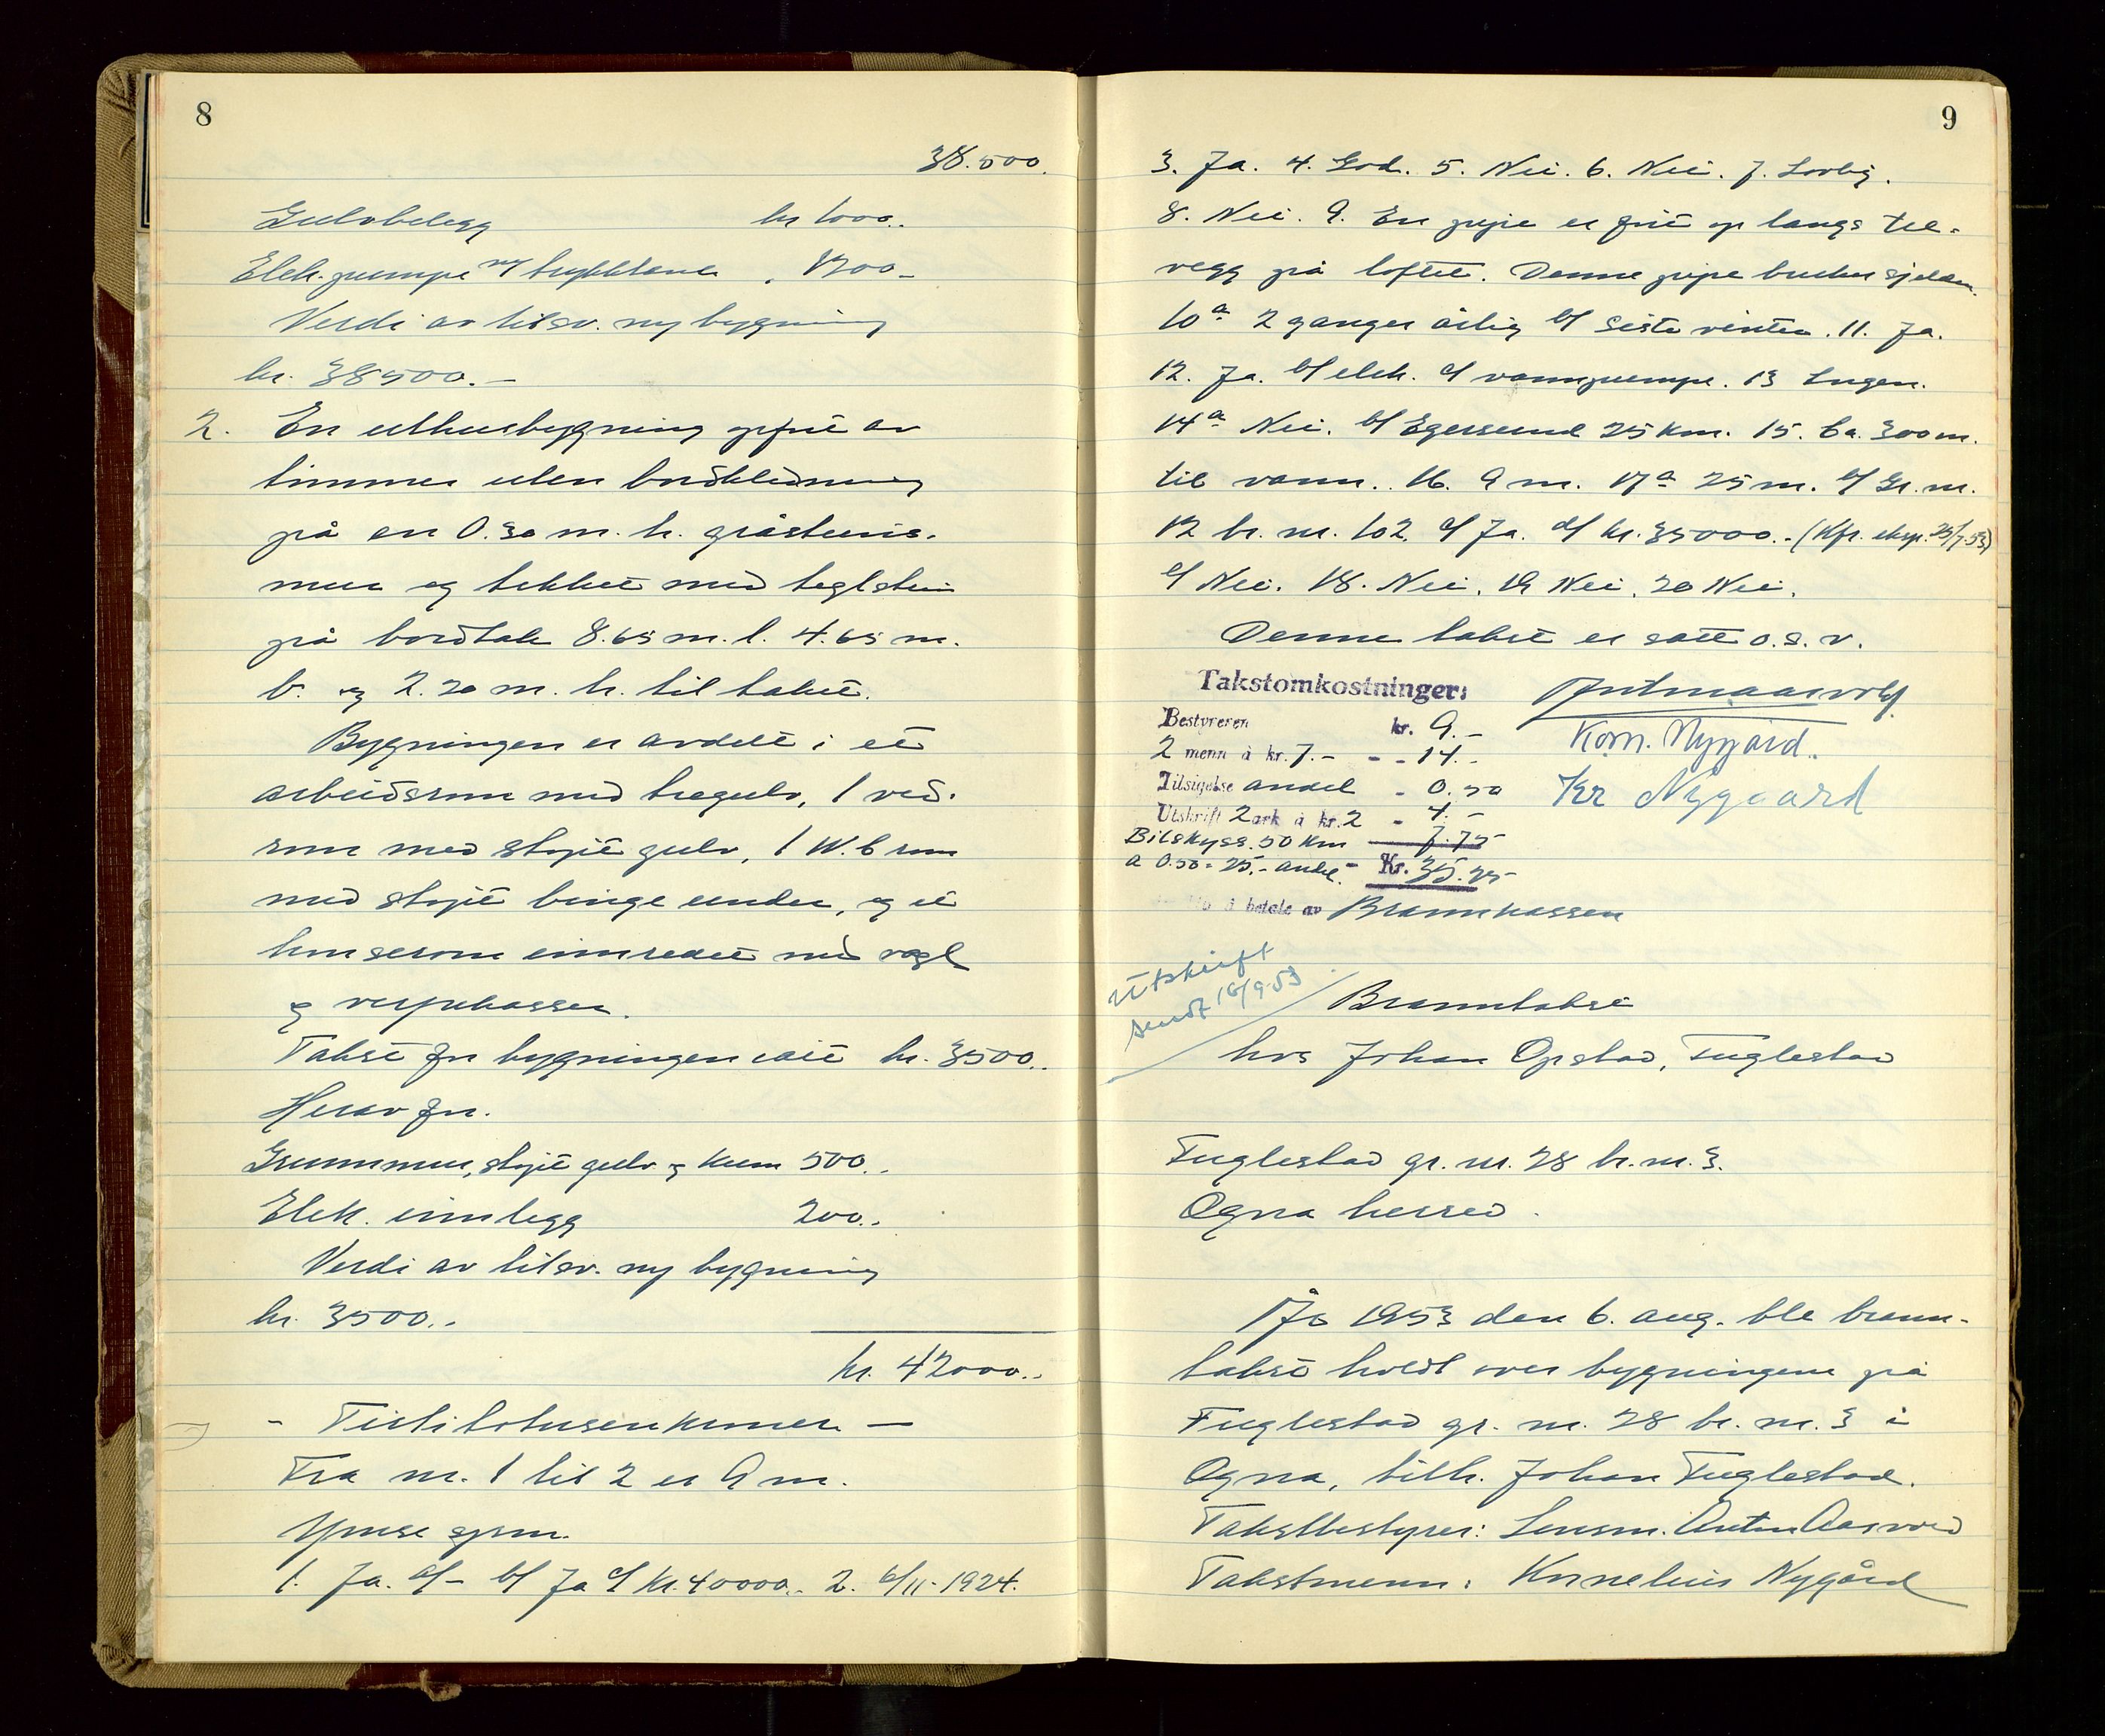 8
38.500.
Gulvbelegg kr 1000.-
Elek. pumpe m/ trykktank " 1200-
Verdi av tilsv. ny bygning
kr. 38500.-
2. En uthusbygning opført av
timmer uten bordkledning
på en 0.30 m. h. gråsteins-
mur og tekket med teglstein
på bordtak 8.65 m. l. 4.65 m.
b. og 2.20 m. h. til taket.
Bygningen er avdelt i et
arbeidsrom med tregulv, 1 ved-
rom med støpt gulv, 1 W.C rom
med støpt binge under, og et
hønserom innredet med vagl
og verpekasser.
Takst for bygningen satt kr. 3500.-
Herav for.
Grunnmur, støpt gulv og kum 500.-
Elek. innlegg 200.-
Verdi av tilsv. ny bygning
kr. 3500.-
kr. 42000.-
- Førtitotusenkroner -
Fra nr. 1 til 2 er 9 m.
Ymse spm.
1. Ja. a/- b/ Ja c/ Kr. 40000.- 2. 6/11-1924.
9
3. Ja. 4. God. 5. Nei. 6. Nei. 7. Lovlig.
8. Nei. 9. En pipe er ført op langs tre-
vegg på loftet. Denne pipe brukes sjelden.
10 a 2 ganger årlig b/ siste vinter. 11. Ja.
12. Ja. b/ elek. c/ vannpumpe. 13 Ingen.
14 a Nei. b/ Egersund 25 km. 15. Ca. 300 m.
til vann. 16. 9 m. 17 a 25 m. b/ Gr. nr.
12 br. nr. 102. c/ Ja. d/ kr. 35000.- (Kfr. eksp. 25/7.53)
e/ Nei. 18. Nei. 19 Nei. 20 Nei.
Denne takst er satt o. s. v.
Takstomkostninger:
Bestyreren kr. 9.-
2 menn à kr. 7.- - - 14.-
Tilsigelse andel - 0.50
Utskrift 2 ark à kr. 2 - 4.-
Bilskyss. 50 km 7.75
a 0.50 = 25.- andel - Kr. 35.25
å betale av Brannkassen
Korn. Nygård.
Kr Nygaard
Utskrift
sendt 16/9-53
Branntakst
hos Johan Opstad, Fuglestad
Fuglestad gr. nr. 28 br. nr. 3.
Ogna herred.
År 1953 den 6. aug. ble brann-
takst holdt over bygningene på
Fuglestad gr. nr. 28 br. nr. 3 i
Ogna, tilh. Johan Fuglestad.
Takstbestyrer: Lensm. Anton Aasvold
Takstmenn: Kornelius Nygård